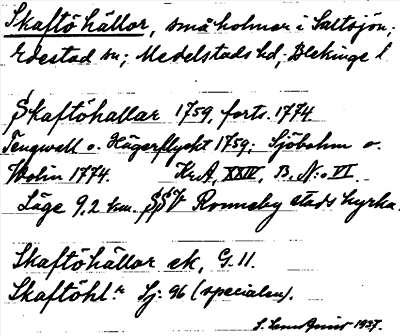 Skaftö hällor, små holmar i Saltsjön;
Edestad sn; Medelstads hd; Blekinge l
Skaftöhallar 1759, forts. 1774
Tengwall o. Hägerflyckt 1759; Sjöbohm o.
Wolin 1774. KrA, XXIV, B, N:o VI.
Läge 9,2 km. SSV Ronneby stads kyrka.
Skaftöhällor ek, G. 11.
Skaftöhl.r Sj: 96 (specialen).
1937.